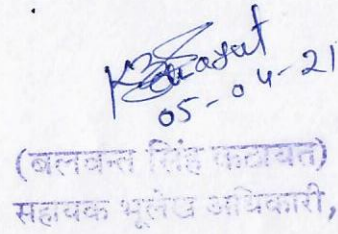 05-04-21
(बलवन्त सिंह कठायत)
सहायक भूलेख अधिकारी,